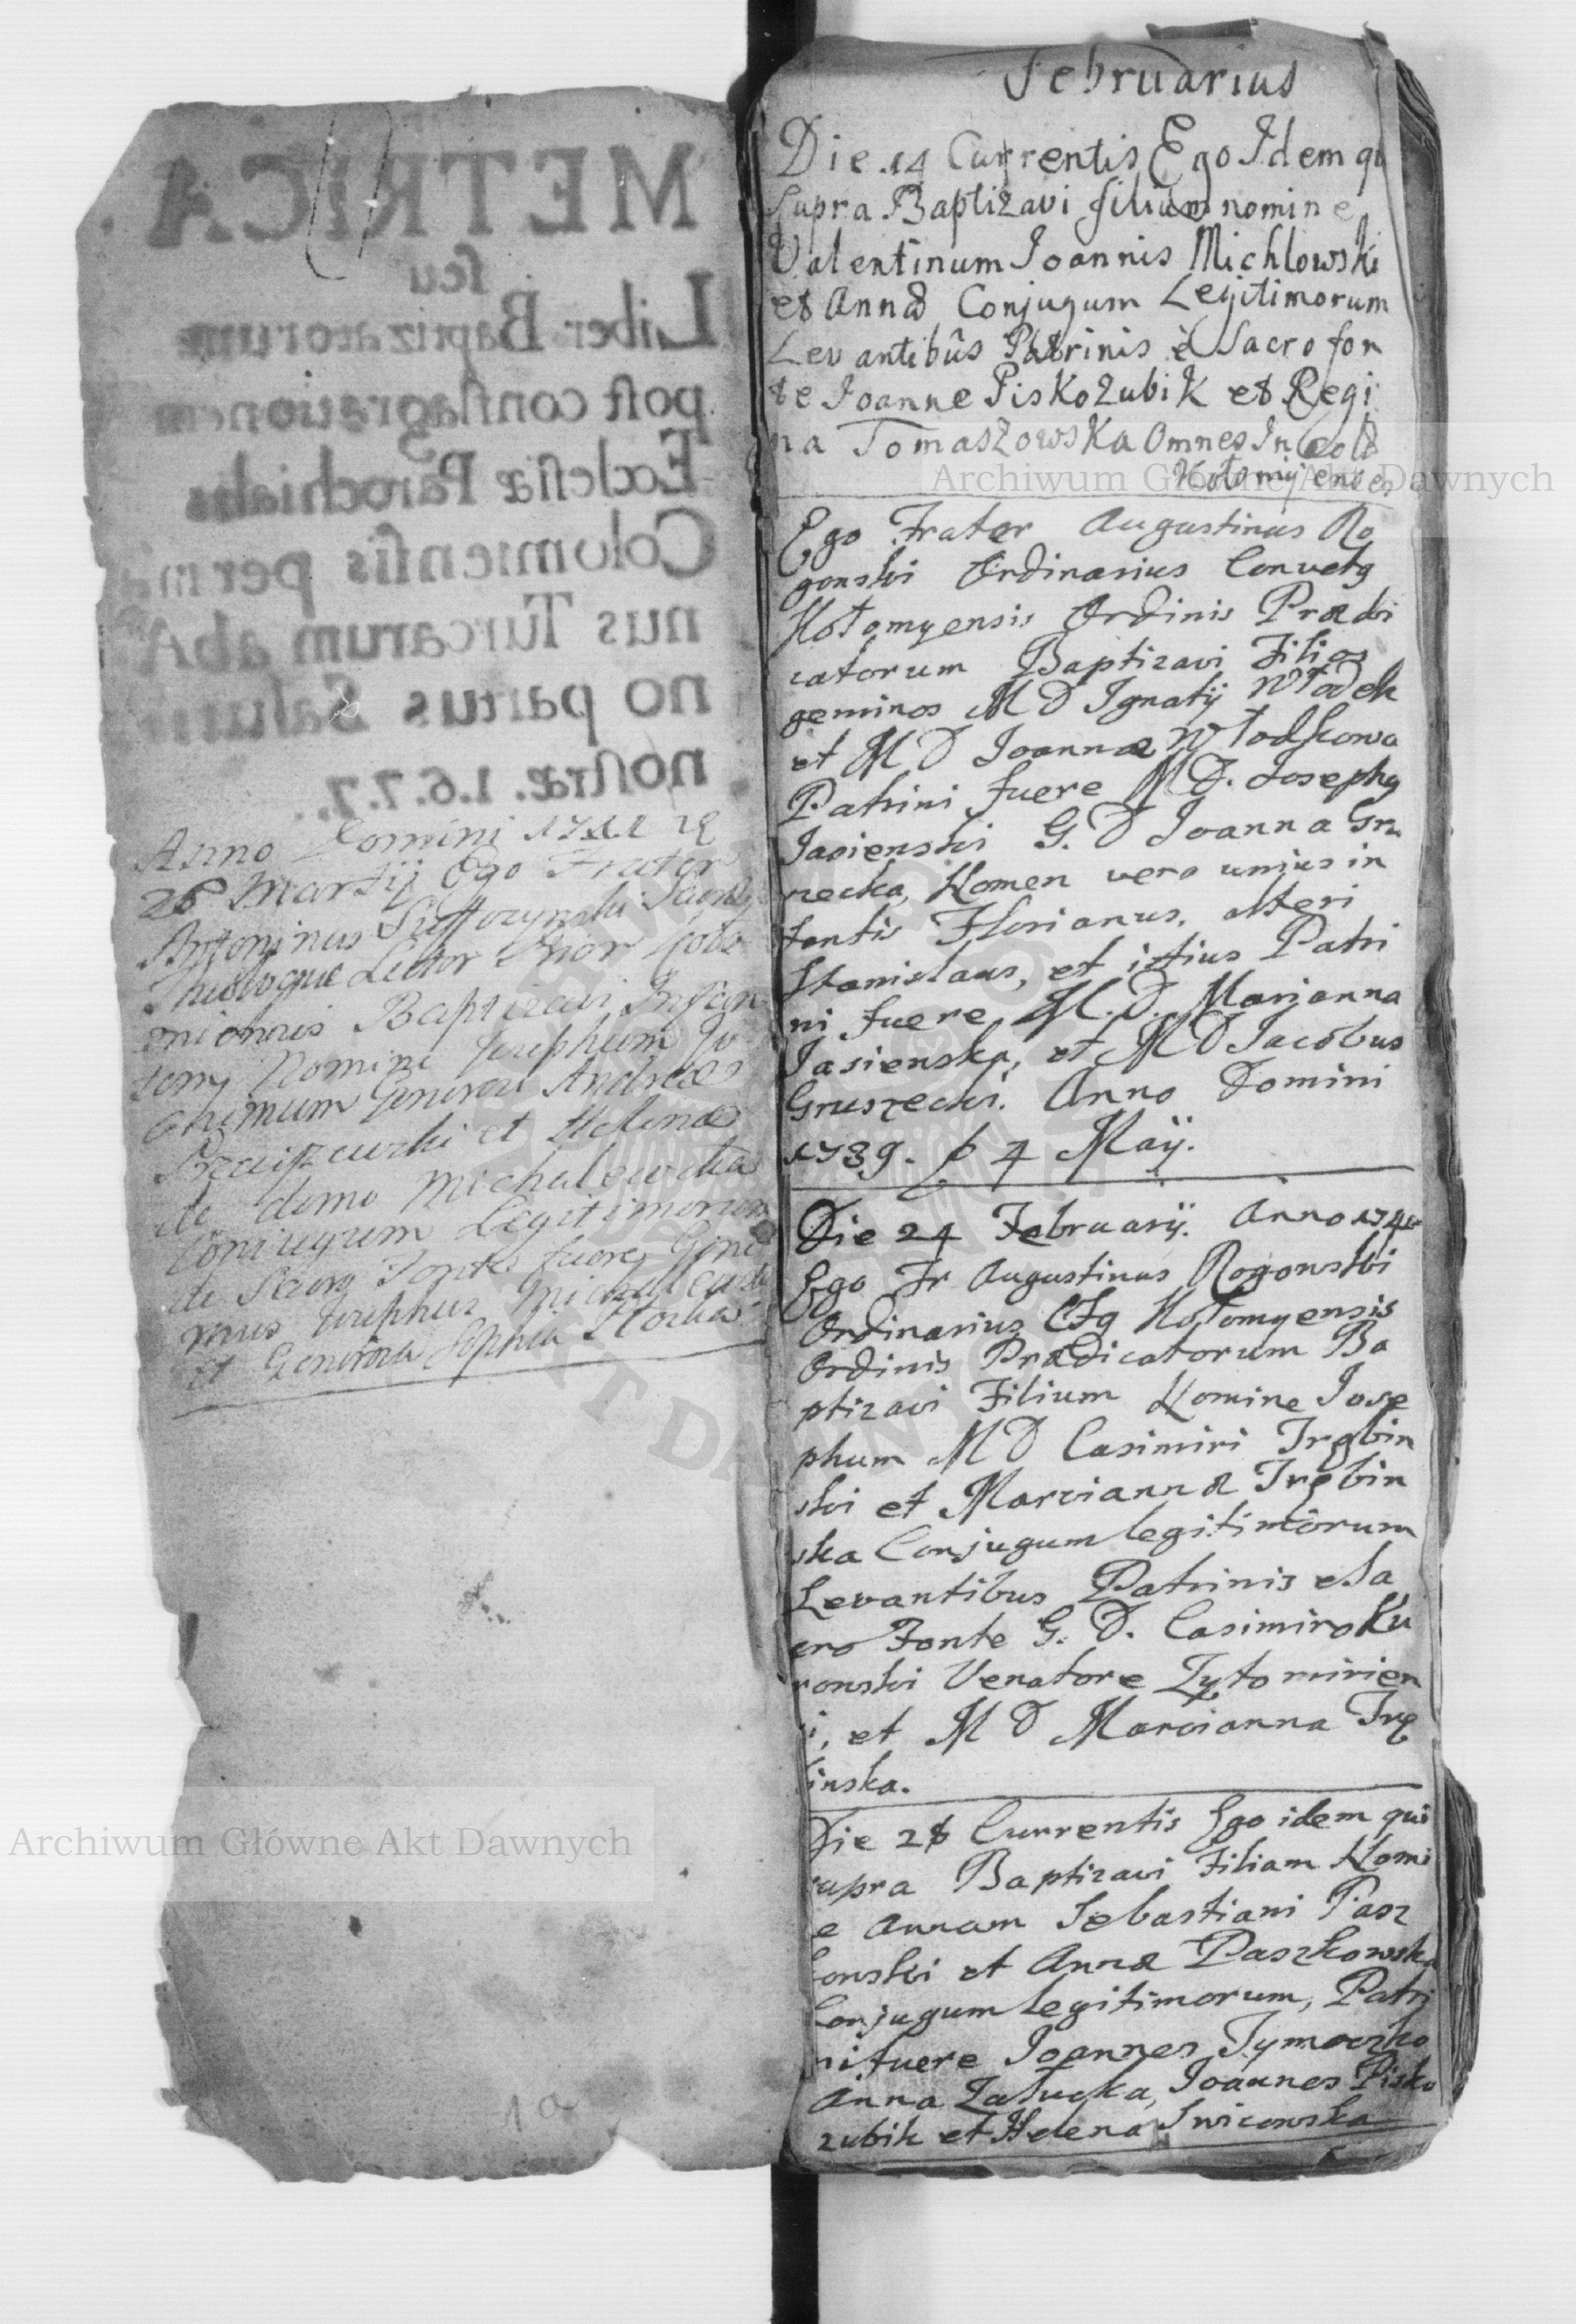 METRICA
seu
Liber Baptizatorum
post conflagrationem
Ecclesiæ Parochialis
Colomiensis per
nus Turcarum ab A
no partus
nostræ. 1.6.7.7.
Anno Domini
26 Martij Ego Frater
Antoninus
Lector Prior
Baptizavi Infan
tem Nomine Josephum Jo
chimum Generosi Andreæ
et Helenæ
de domo Michalewska
Coniugum Legitimorum
de Sacro Fonte fuere Gene
rosus Josephus
et Generosa Sophia
1a
Februarius
Die 14 Currentis Ego Idem qi
supra Baptizavi filium nomine
Valentinum Joannis Michlowski
et Annæ Conjugum Legitimorum
Levantibûs Patrinis è Sacro fon
te Joanne Piskozubik et Regi
na Tomaszowska Omnes Incolæ
Kołomÿenses
Ego Frater Augustinus Ro
gonski Ordinarius Convetg
Kołomyensis Ordinis Prædi
catorum Baptizavi Filios
geminos M D Ignatij Włodek
et M D Joannæ Włodkowa
Patrini fuere M D. Josephg
Jasienski G. D Joanna Gru
szecka, Nomen vero unius in
fantis Florianus, alteri
Stanislaus, et istius Patri
ni fuere M. D. Marjanna
Jasienska, et M D Jacobus
Gruszecki. Anno Domini
1739. 4 Maij.
Die 24 Februarij. Anno 1740
Ego Fr Augustinus Rogonski
Ordinarius Ctg Kołomyensis
Ordinis Prædicatorum Ba
ptizavi Filium Nomine Jose
phum M D Casimiri Trębin
ski et Marcianna Trębin
ska Conjugum legitimorum
Levantibus Patrinis e Sa
cro Fonte G. D. Casimiro Ku
ronski Venatore Zytomirien
i, et M D Marcianna Trę
binska.
Die 28 Currentis Ego idem qui
supra Baptizavi Filiam Nomi
e Annam Sebastiani Pasz
konski et Annæ Paszkowska
Conjugum legitimorum, Patri
ni fuere Joannes Tymoczko
Anna Załucka, Joannes Pisko
zubik et Helena
Archiwum Główne Akt Dawnych
Archiwum Główne Akt Dawnych